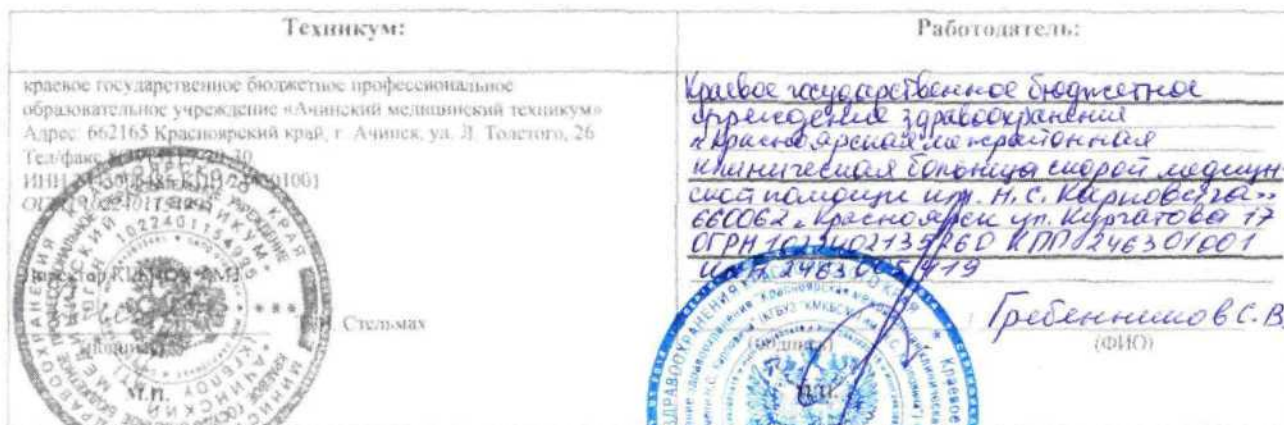 Техникум:
краевое государственное бюджетное профессиональное
образовательное учреждение «Ачинский медицинский техникум»
Адрес: 662165 Красноярский край, г. Ачинск, ул. Л. Толстого, 26
Тел/факс
ИНН
Стельмах
М.П.
Работодатель:
Краевое государственное бюджетное
учреждение здравоохранения
«Красноярская межрайонная
клиническая больница скорой медицин
ской помощи им. Н.С. Карповича»
660062 г. Красноярск ул. Курчатова 17
ОГРН КПП 246301001
Гребенников С.В
(подпись)
(ФИО)